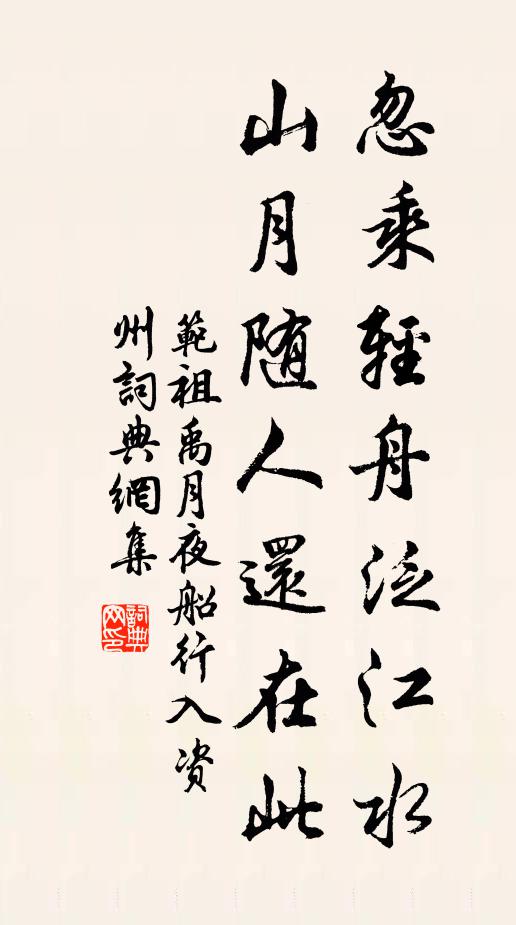 忽乘輕舟泛江水
山月随人還在此
範祖禹月夜船行入资
州詞典網集
詞典
网印